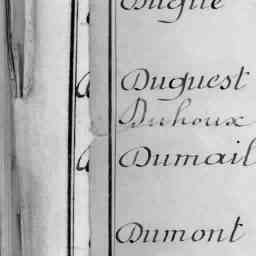 Duguest
Duhoux
Dumail
Dumont